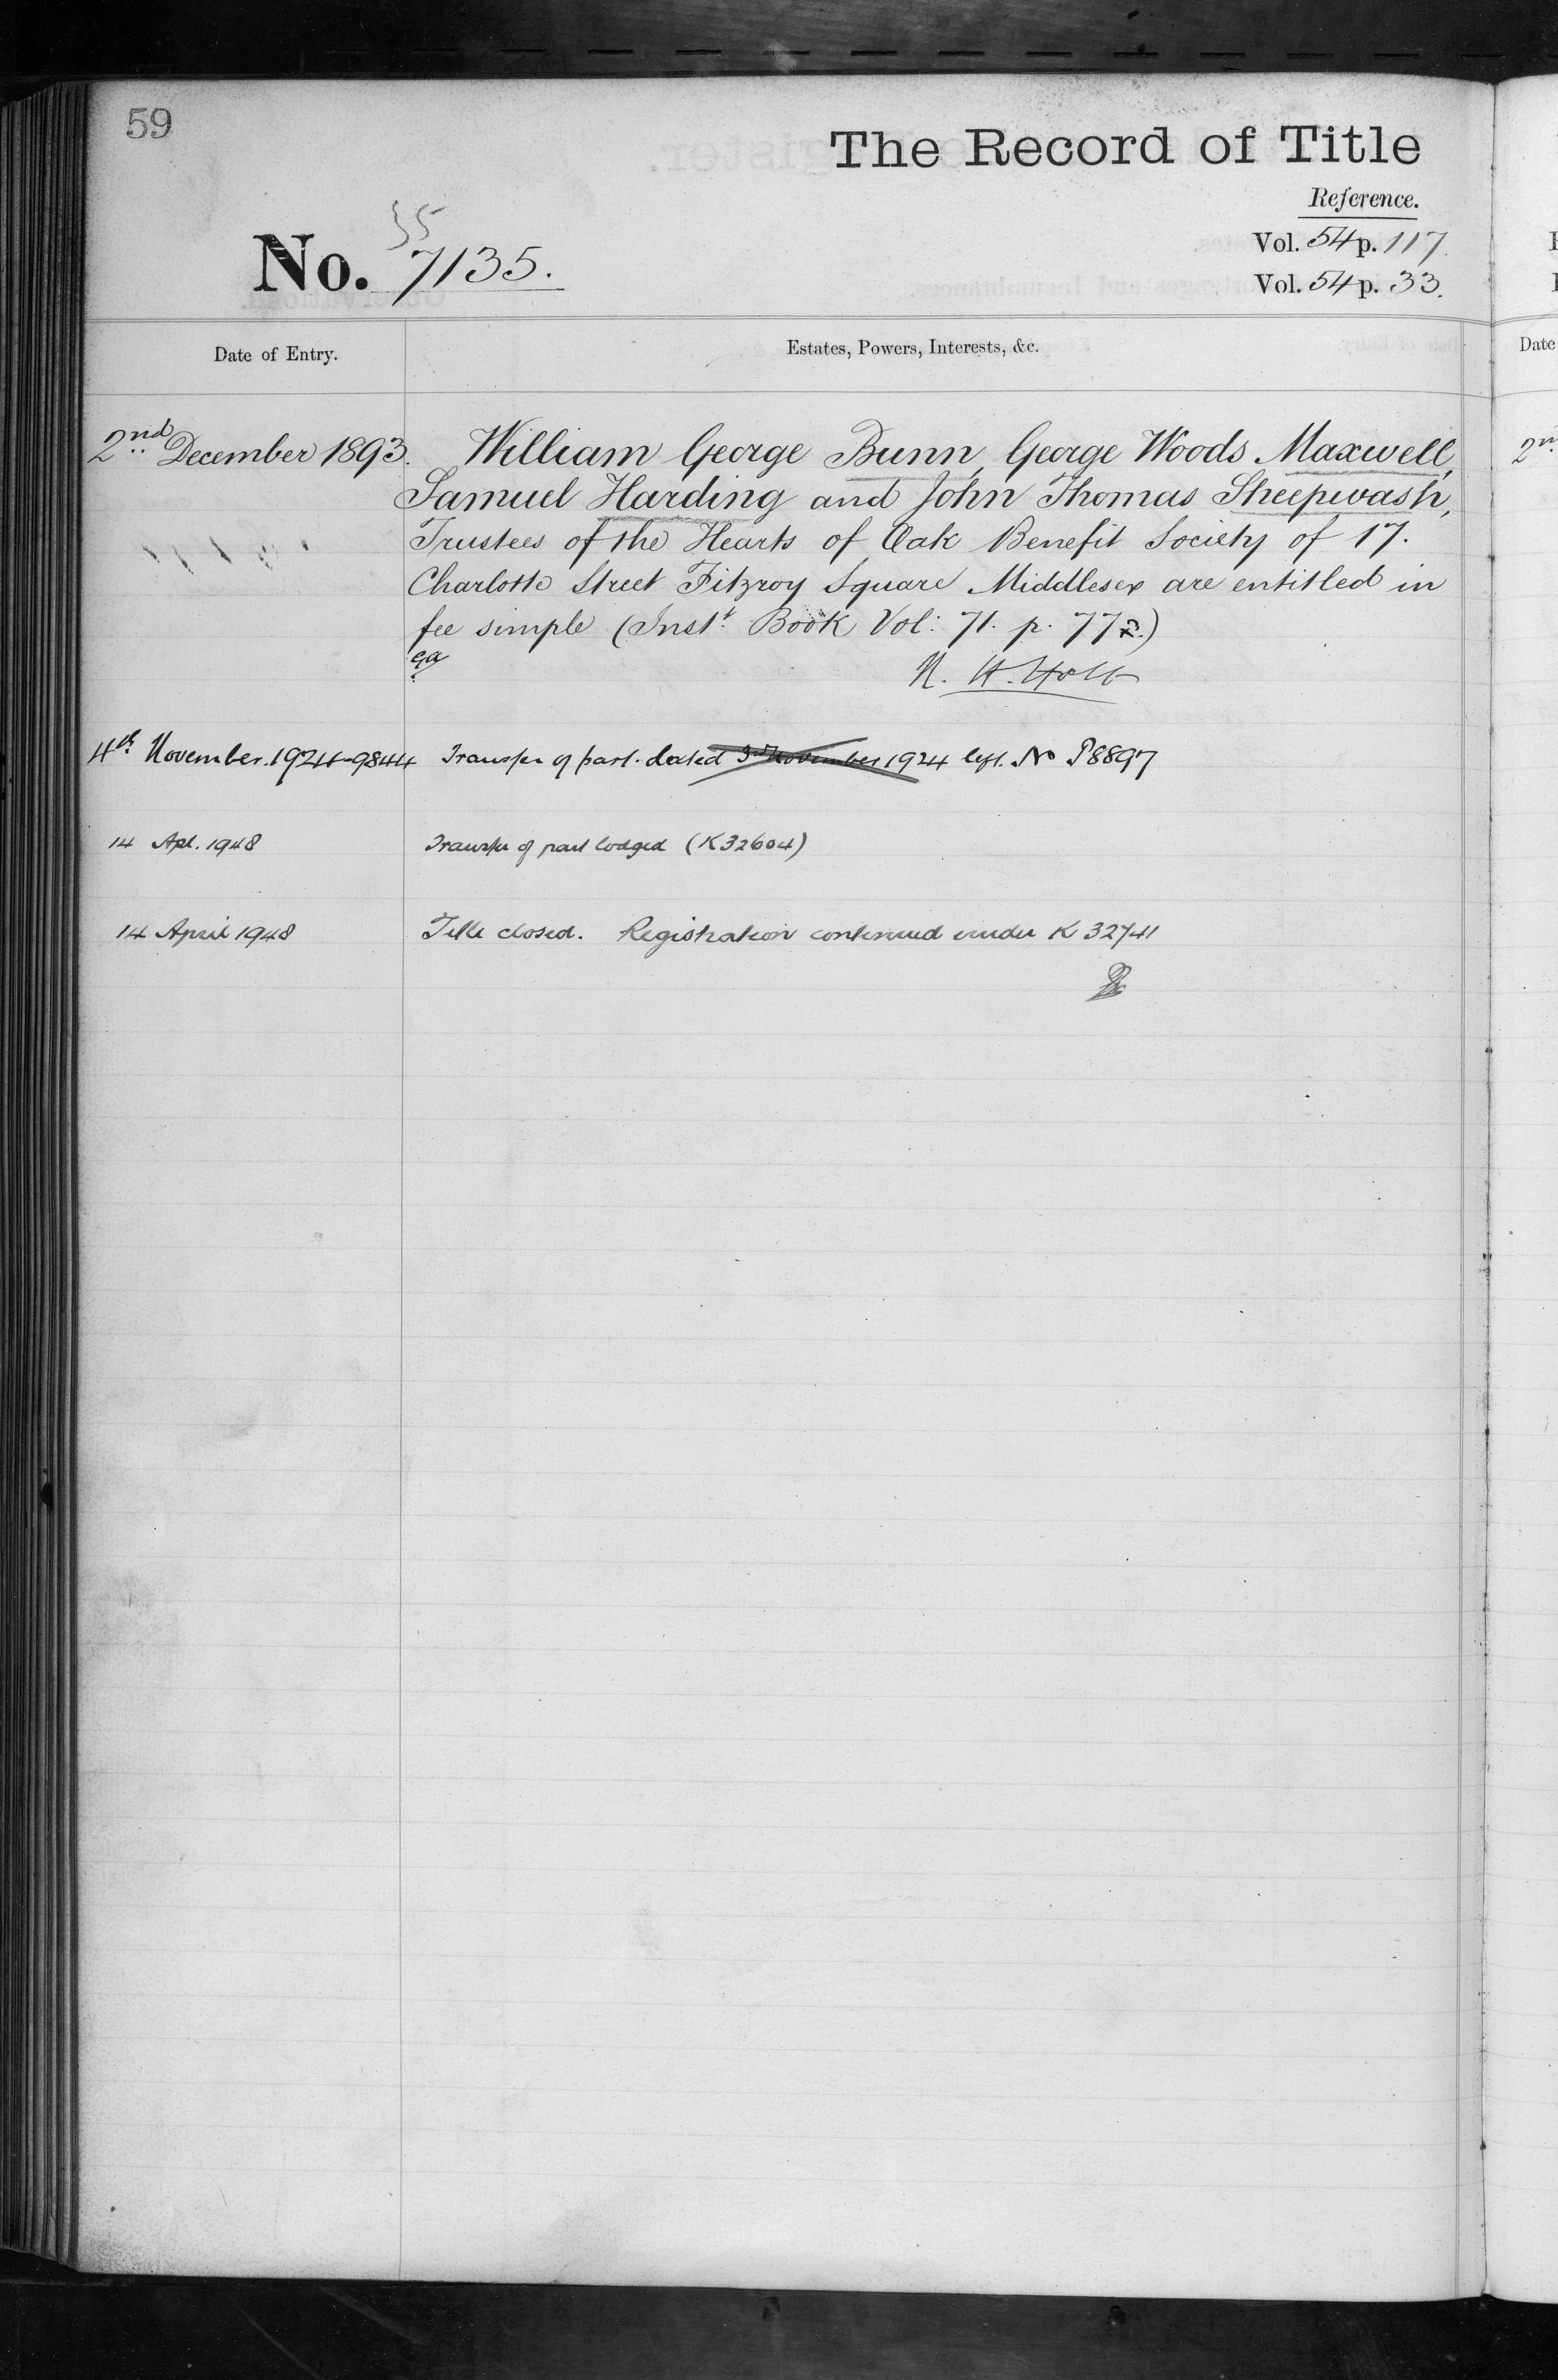 59
The Record of Title
Reference.
35
No. 7135.
Vol. 54 p. 117.
Vol. 54 p. 33.
Date of Entry.
Estates, Powers, Interests, &c.
Date
2nd December 1893. William George Bunn, George Woods Maxwell,
Samuel Harding and John Thomas Sheepwash,
Trustees of the Hearts of Oak Benefit Society of 17.
Charlotte Street Fitzroy Square Middlesex are entitled in
fee simple (Inst. Book Vol: 71. p. 77
N. H. Holt
2n
4th November. 1924-9844 Transfer of part. dated 3rd November 1924 left. No P8897
14 Apl. 1948 Transfer of part lodged (K32604)
14 April 1948 Title closed. Registration continued under K 32741